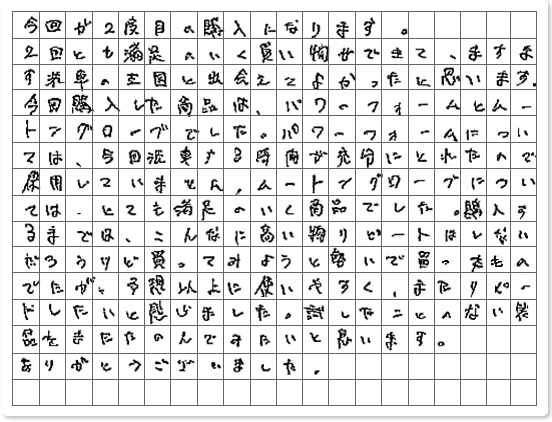 今回が２度目の購入になります。
２回とも満足のいく買い物ができて、ますま
す洗車の王国と出会えてよかったと思います。
今回購入した商品は、パワーフォームとムー
トングローブでした。パワーフォームについ
ては、今回洗車する時間が充分にとれたので
使用していません、ムートングローブについ
ては、とても満足のいく商品でした。購入す
るまでは、こんなに高い物リピートはしない
だろうけど買ってみようと勢いで買ったもの
でたが、予想以上に使いやすく、またリピー
トしたいと感じました。試したことのない製
品をまたたのんでみたいと思います。
ありがとうございました。